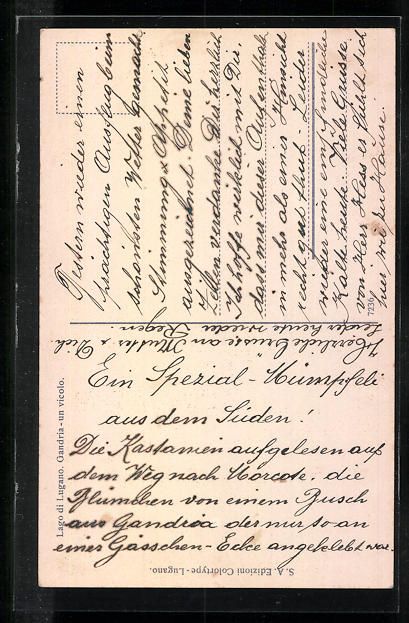 Gestern wieder einen
prächtigen Ausflug beim
schönsten Wetter gemacht
Stimmung & Appetit
ausgezeichnet. Deine lieben
Zeilen verdanke Dir herzlich
Ich hoffe wirklich mit Dir,
dass mir dieser Aufenthalt
in mehr als einer Hinsicht
recht gut thut. Leider
wieder eine empfindliche
Kälte heute. Viele Grüsse
von Herr Hess es fühlt sich
hier wie zu Hause.
7236
Herzliche Grüsse an Mutter & Dich
Leider heute wieder Regen.
Ein Spezial-Hümpfeli
aus dem Süden!
Die Kastanien aufgelesen auf
dem Weg nach Morcote, die
Blümchen von einem Busch
aus Gandria der nur so an
einer Gässchen-Ecke angeklebt war.
Lago di Lugano. Gandria - un vicolo.
S. A. Edizioni Colortype - Lugano.